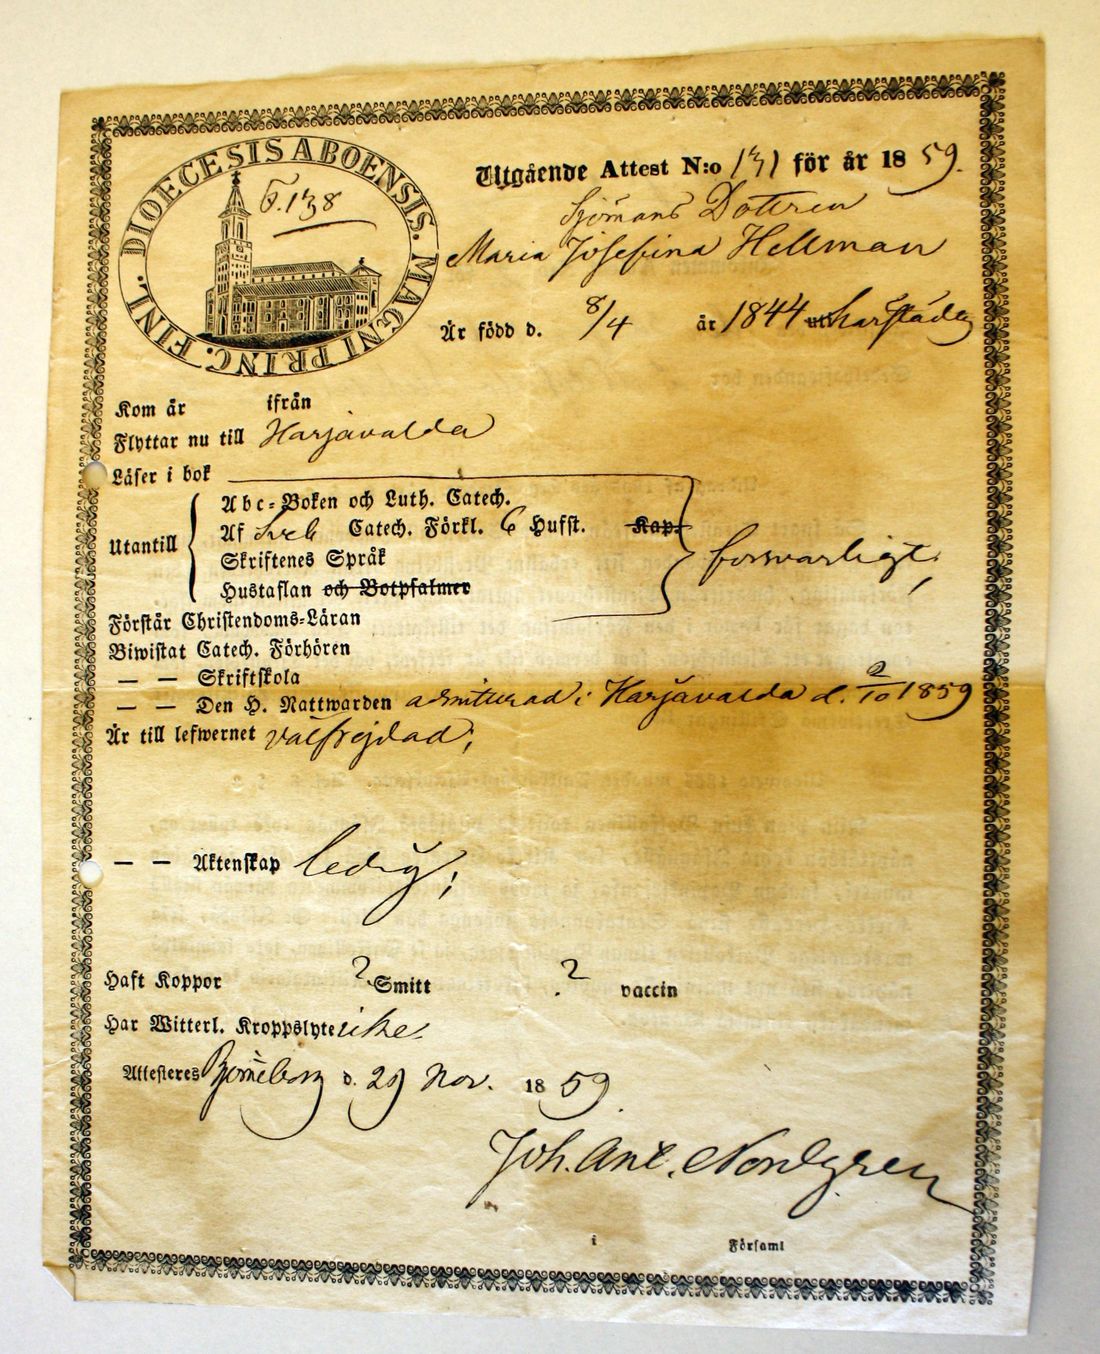 DIOECESIS ABOENSIS. MAGNI PRINC. FINL.
F. 138
Utgående Attest N:o 131 för år 1859.
Sjömans Dottren
Maria Josefina Hellman
Är född d. 8/4 år 1844 här städes
Kom år ifrån
Flyttar nu till Harjavalda
Läser i bok
Utantill
Abc-Boken och Luth. Catech.
Af Sveb Catech. Förkl. 6 Hufst. Kap.
Skriftenes Språk
Hustaflan och Botpsalmer
försvarligt;
Förstår Christendoms-Läran
Biwistat Catech. Förhören
— — Skriftskola
— — Den H. Nattwarden admitterad i Harjavalda d. 2/10 1859
Är till lefwernet välfrejdad;
— — Äktenskap ledig;
Haft Koppor ? Smitt ? vaccin
Har Witterl. Kroppslyte icke.
Attesteres Björneborg d. 29 Nov. 1859.
Joh. Ant. Nordgren
i Församl